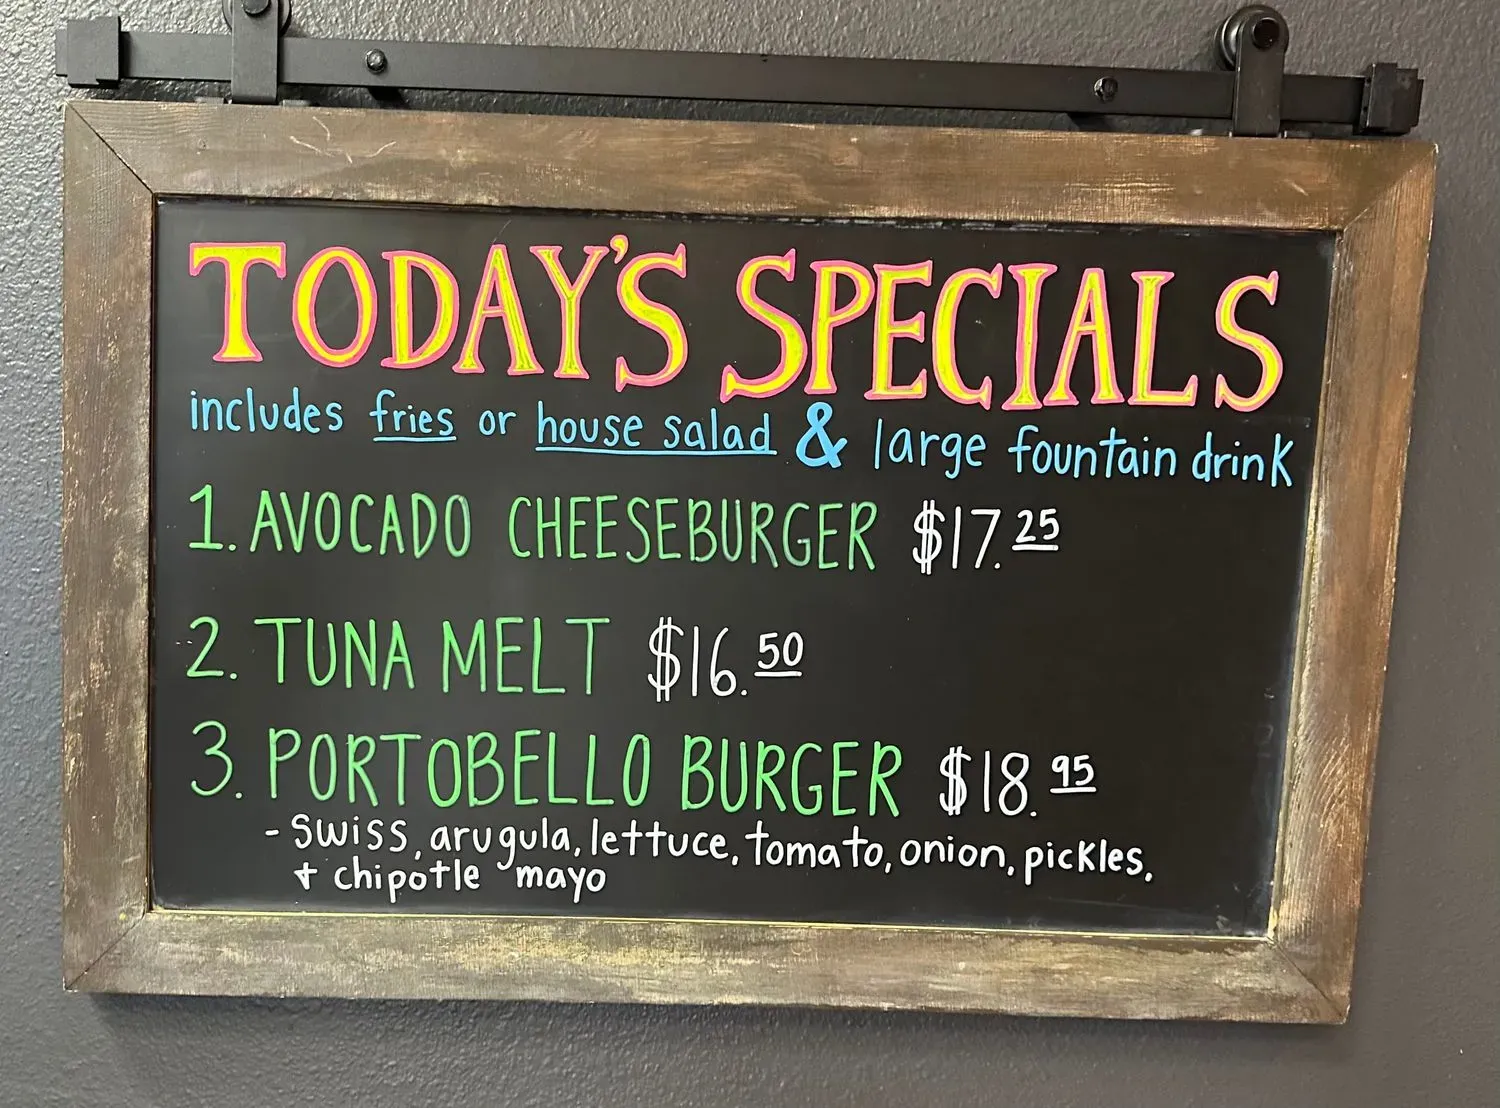 TODAY'S SPECIALS
includes fries or house salad & large fountain drink
1. AVOCADO CHEESEBURGER $17.25
2. TUNA MELT $16.50
3. PORTOBELLO BURGER $18.95
- Swiss, arugula, lettuce, tomato, onion, pickles,
+ chipotle mayo